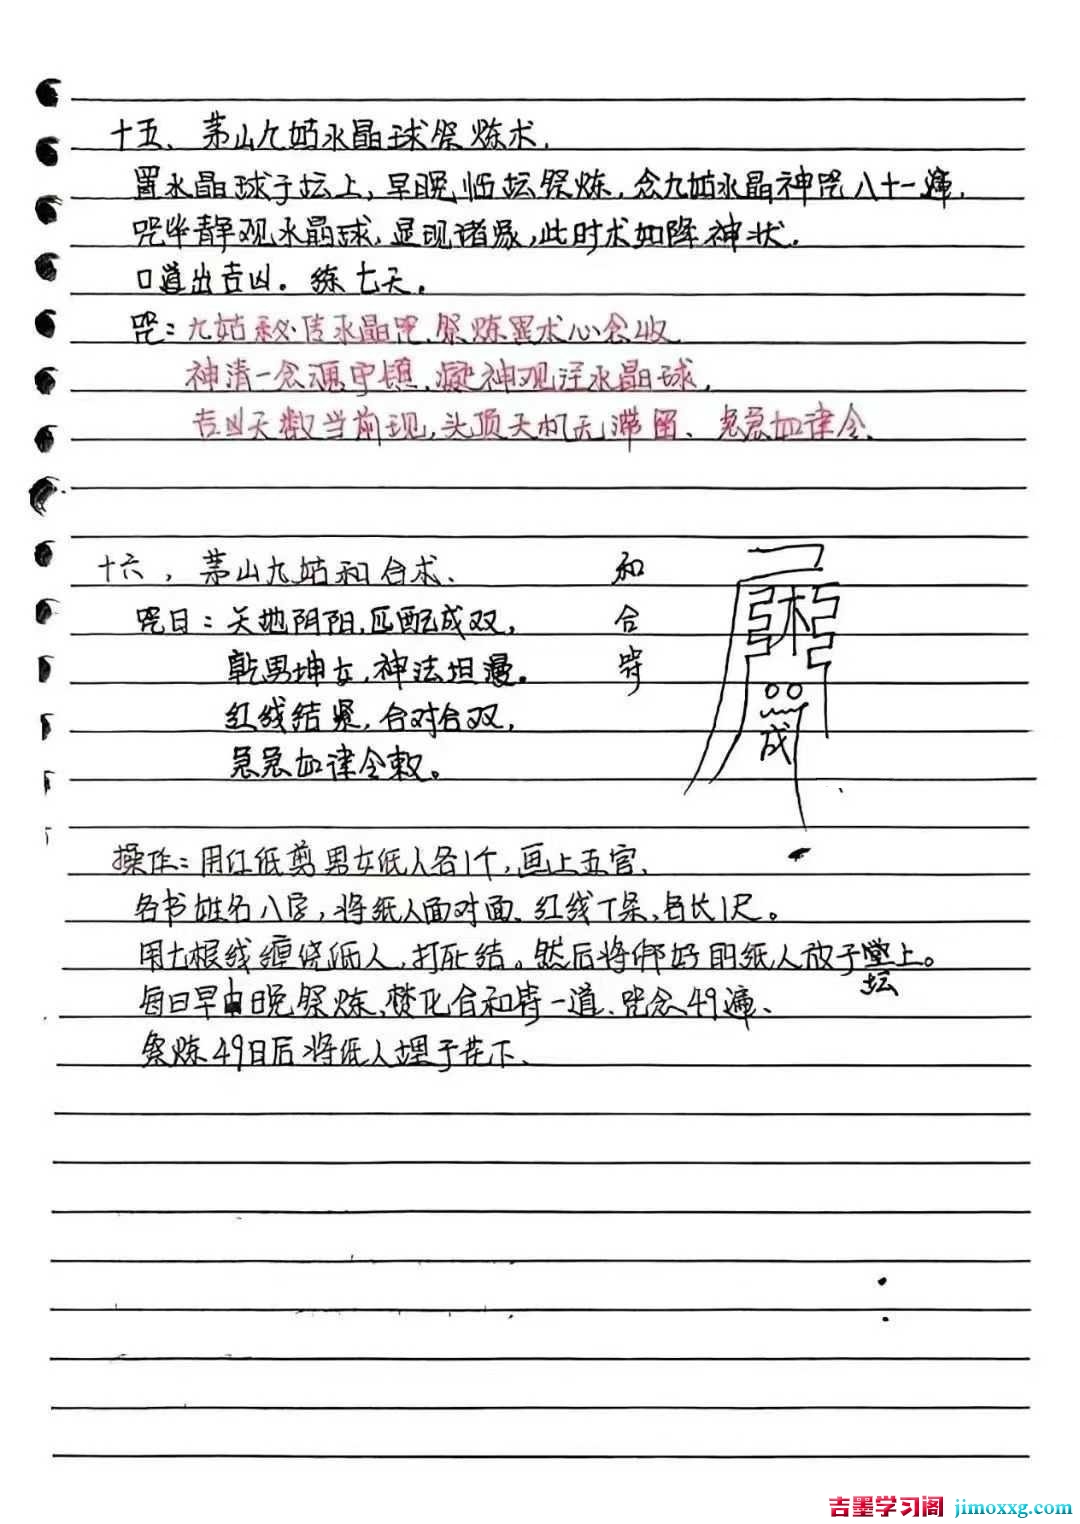 十五、茅山九姑水晶球祭炼术.
置水晶球于坛上,早晚临坛祭炼,念九姑水晶神咒八十一遍,
咒毕静观水晶球,显现诸象,此时术如降神状.
口道出吉凶。练七天。
咒:九姑秘传水晶咒,祭炼置术心念收
神清一念 守镇,凝神观注水晶球,
吉凶天数当前现,头顶天机无滞留、急急如律令、
十六,茅山九姑和合术、
和合符
咒曰:天地阴阳,匹配成双,
乾男坤女,神法坦漫。
红线结紧,合对合双,
急急如律令敕。
成
操作:用红纸剪男女纸人各1个,画上五官、
各书姓名八字,将纸人面对面、红线7条、各长1尺。
用七根线缠绕纸人,打死结。然后将绑好的纸人放于堂上。
坛
每日早中晚祭炼、焚化合和符一道、咒念49遍、
祭炼49日后将纸人埋于花下、
吉墨学习阁 jimoxxg.com